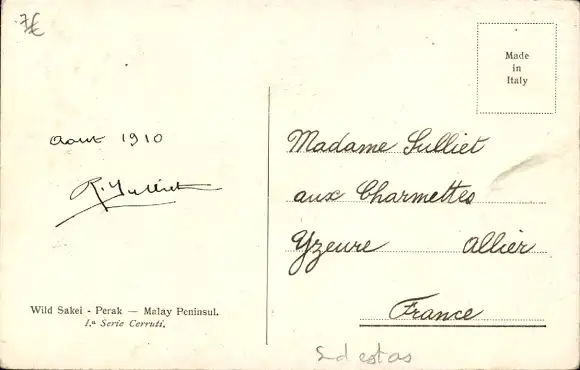 7€
Made
in
Italy
Aout 1910
Madame Sulliet
aux Charmettes
Yzeure Allier
France
Wild Sakei - Perak — Malay Peninsul.
1.ª Serie Cerruti.